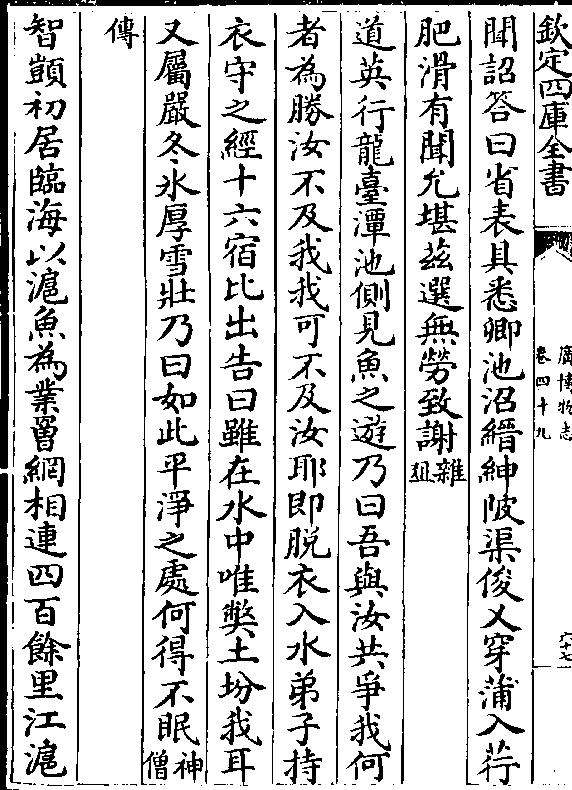 欽定四庫全書
廣博物志
卷四十九
六十七
聞詔答曰省表具悉卿池沼縉紳陂渠俊乂穿蒲入荇
肥滑有聞允堪茲選無勞致謝雜俎
道英行龍臺潭池側見魚之遊乃曰吾與汝共爭我何
者為勝汝不及我我可不及汝耶即脱衣入水弟子持
衣守之經十六宿比出告曰雖在水中唯獘土坌我耳
又屬嚴冬氷厚雪壯乃曰如此平淨之處何得不眠神僧
傳
智顗初居臨海以滬魚為業罾網相連四百餘里江滬